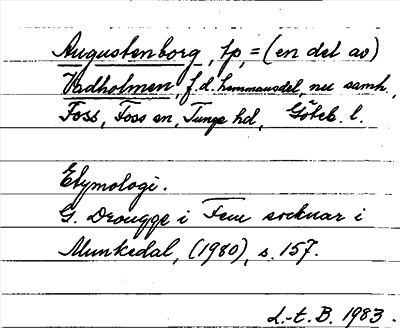 Augustenborg, fp, = (en del av)
Vadholmen, f.d. hemmansdel, nu samh.,
Foss, Foss sn, Tunge hd, Göteb. l.
Etymologi.
G. Drougge i Fem socknar i
Munkedal, (1980), s. 157.
L-t. B. 1983.